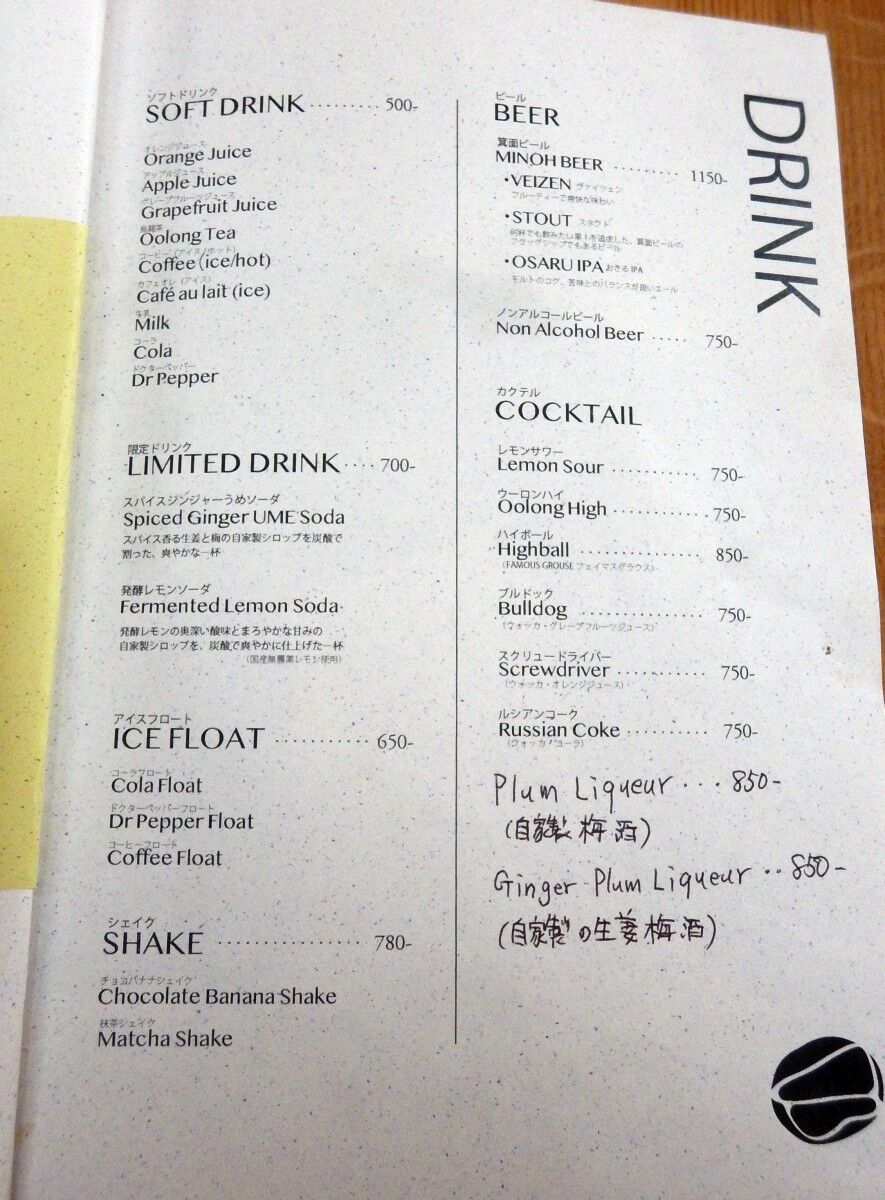 DRINK
ソフトドリンク
SOFT DRINK ········· 500-
オレンジジュース
Orange Juice
アップルジュース
Apple Juice
グレープフルーツジュース
Grapefruit Juice
烏龍茶
Oolong Tea
コーヒー(アイス/ホット)
Coffee (ice/hot)
カフェオレ(アイス)
Café au lait (ice)
牛乳
Milk
コーラ
Cola
ドクターペッパー
Dr Pepper
限定ドリンク
LIMITED DRINK ···· 700-
スパイスジンジャーうめソーダ
Spiced Ginger UME Soda
スパイス香る生姜と梅の自家製シロップを炭酸で
割った、爽やかな一杯
発酵レモンソーダ
Fermented Lemon Soda
発酵レモンの奥深い酸味とまろやかな甘みの
自家製シロップを、炭酸で爽やかに仕上げた一杯
(国産無農薬レモン使用)
アイスフロート
ICE FLOAT ··········· 650-
コーラフロート
Cola Float
ドクターペッパーフロート
Dr Pepper Float
コーヒーフロート
Coffee Float
シェイク
SHAKE ················· 780-
チョコバナナシェイク
Chocolate Banana Shake
抹茶シェイク
Matcha Shake
ビール
BEER
箕面ビール
MINOH BEER ········· 1150-
・VEIZEN ヴァイツェン
フルーティーで爽快な味わい
・STOUT スタウト
何杯でも飲みたい黒!を追求した、箕面ビールの
フラッグシップでもあるビール
・OSARU IPA おさる IPA
モルトのコク、苦味とのバランスが良いエール
ノンアルコールビール
Non Alcohol Beer ····· 750-
カクテル
COCKTAIL
レモンサワー
Lemon Sour ··········· 750-
ウーロンハイ
Oolong High ··········· 750-
ハイボール
Highball ················ 850-
(FAMOUS GROUSE フェイマスグラウス)
ブルドック
Bulldog ················ 750-
(ウォッカ・グレープフルーツジュース)
スクリュードライバー
Screwdriver ··········· 750-
(ウォッカ・オレンジジュース)
ルシアンコーク
Russian Coke ·········· 750-
(ウォッカ・コーラ)
Plum Liqueur ··· 850-
(自家製梅酒)
Ginger Plum Liqueur ·· 850-
(自家製の生姜梅酒)